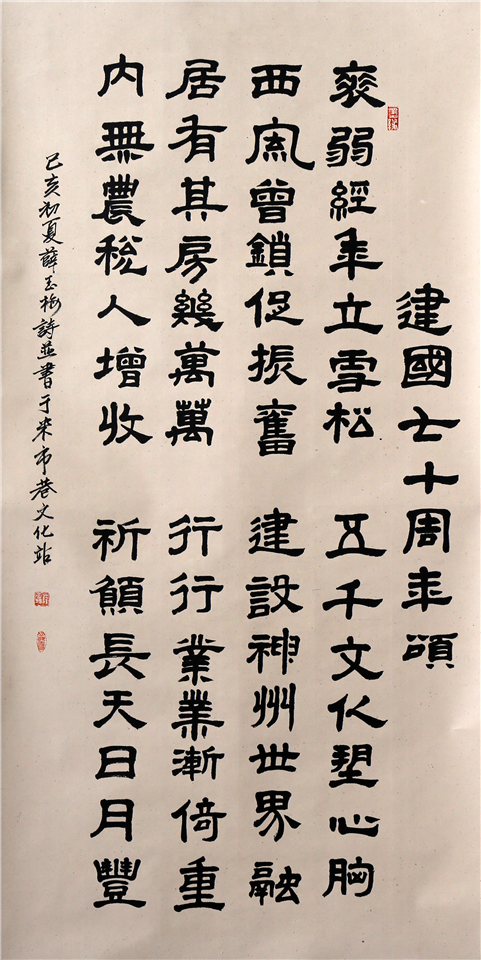 建國七十周年頌
衰弱經年立雪松 五千文化塑心胸
西風曾鎖促振奮 建設神州世界融
居有其房幾萬萬 行行業業漸倚重
內無農稅人增收 祈願長天日月豐
己亥初夏薛玉梅詩並書于米市巷文化站